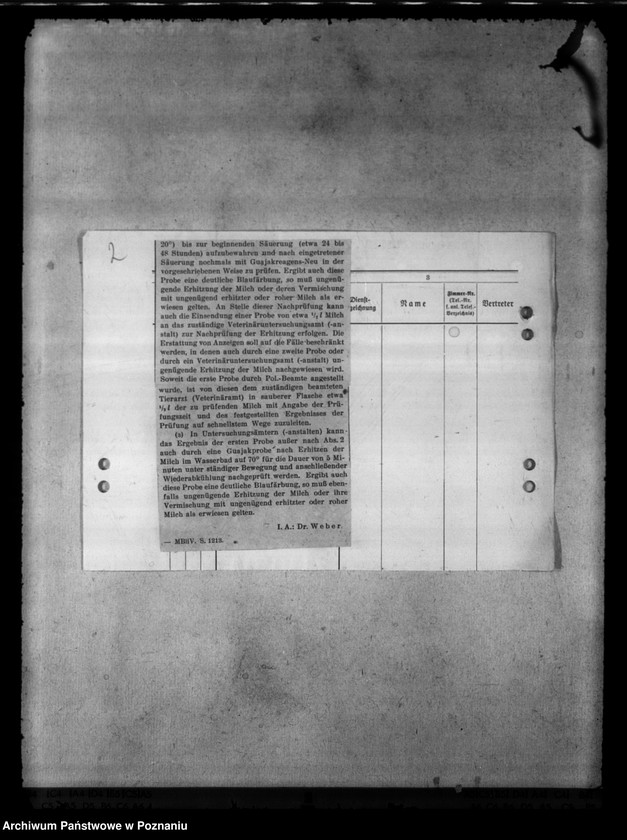 2
20°) bis zur beginnenden Säuerung (etwa 24 bis
48 Stunden) aufzubewahren und nach eingetretener
Säuerung nochmals mit Guajakreagens-Neu in der
vorgeschriebenen Weise zu prüfen. Ergibt auch diese
Probe eine deutliche Blaufärbung, so muß ungenü-
gende Erhitzung der Milch oder deren Vermischung
mit ungenügend erhitzter oder roher Milch als er-
wiesen gelten. An Stelle dieser Nachprüfung kann
auch die Einsendung einer Probe von etwa ¼ l Milch
an das zuständige Veterinäruntersuchungsamt (-an-
stalt) zur Nachprüfung der Erhitzung erfolgen. Die
Erstattung von Anzeigen soll auf die Fälle beschränkt
werden, in denen auch durch eine zweite Probe oder
durch ein Veterinäruntersuchungsamt (-anstalt) un-
genügende Erhitzung der Milch nachgewiesen wird.
Soweit die erste Probe durch Pol.-Beamte angestellt
wurde, ist von diesen dem zuständigen beamteten
Tierarzt (Veterinäramt) in sauberer Flasche etwa
¼ l der zu prüfenden Milch mit Angabe der Prü-
fungszeit und des festgestellten Ergebnisses der
Prüfung auf schnellstem Wege zuzuleiten.
(3) In Untersuchungsämtern (-anstalten) kann
das Ergebnis der ersten Probe außer nach Abs. 2
auch durch eine Guajakprobe nach Erhitzen der
Milch im Wasserbad auf 70° für die Dauer von 5 Mi-
nuten unter ständiger Bewegung und anschließender
Wiederabkühlung nachgeprüft werden. Ergibt auch
diese Probe eine deutliche Blaufärbung, so muß eben-
falls ungenügende Erhitzung der Milch oder ihre
Vermischung mit ungenügend erhitzter oder roher
Milch als erwiesen gelten.
I. A.: Dr. Weber.
— MBliV. S. 1213.
3
Dienst-
zeichnung
Name
Zimmer-Nr.
(Tel.-Nr.
f. aut. Telef.-
Verzeichnis)
Vertreter
Archiwum Państwowe w Poznaniu